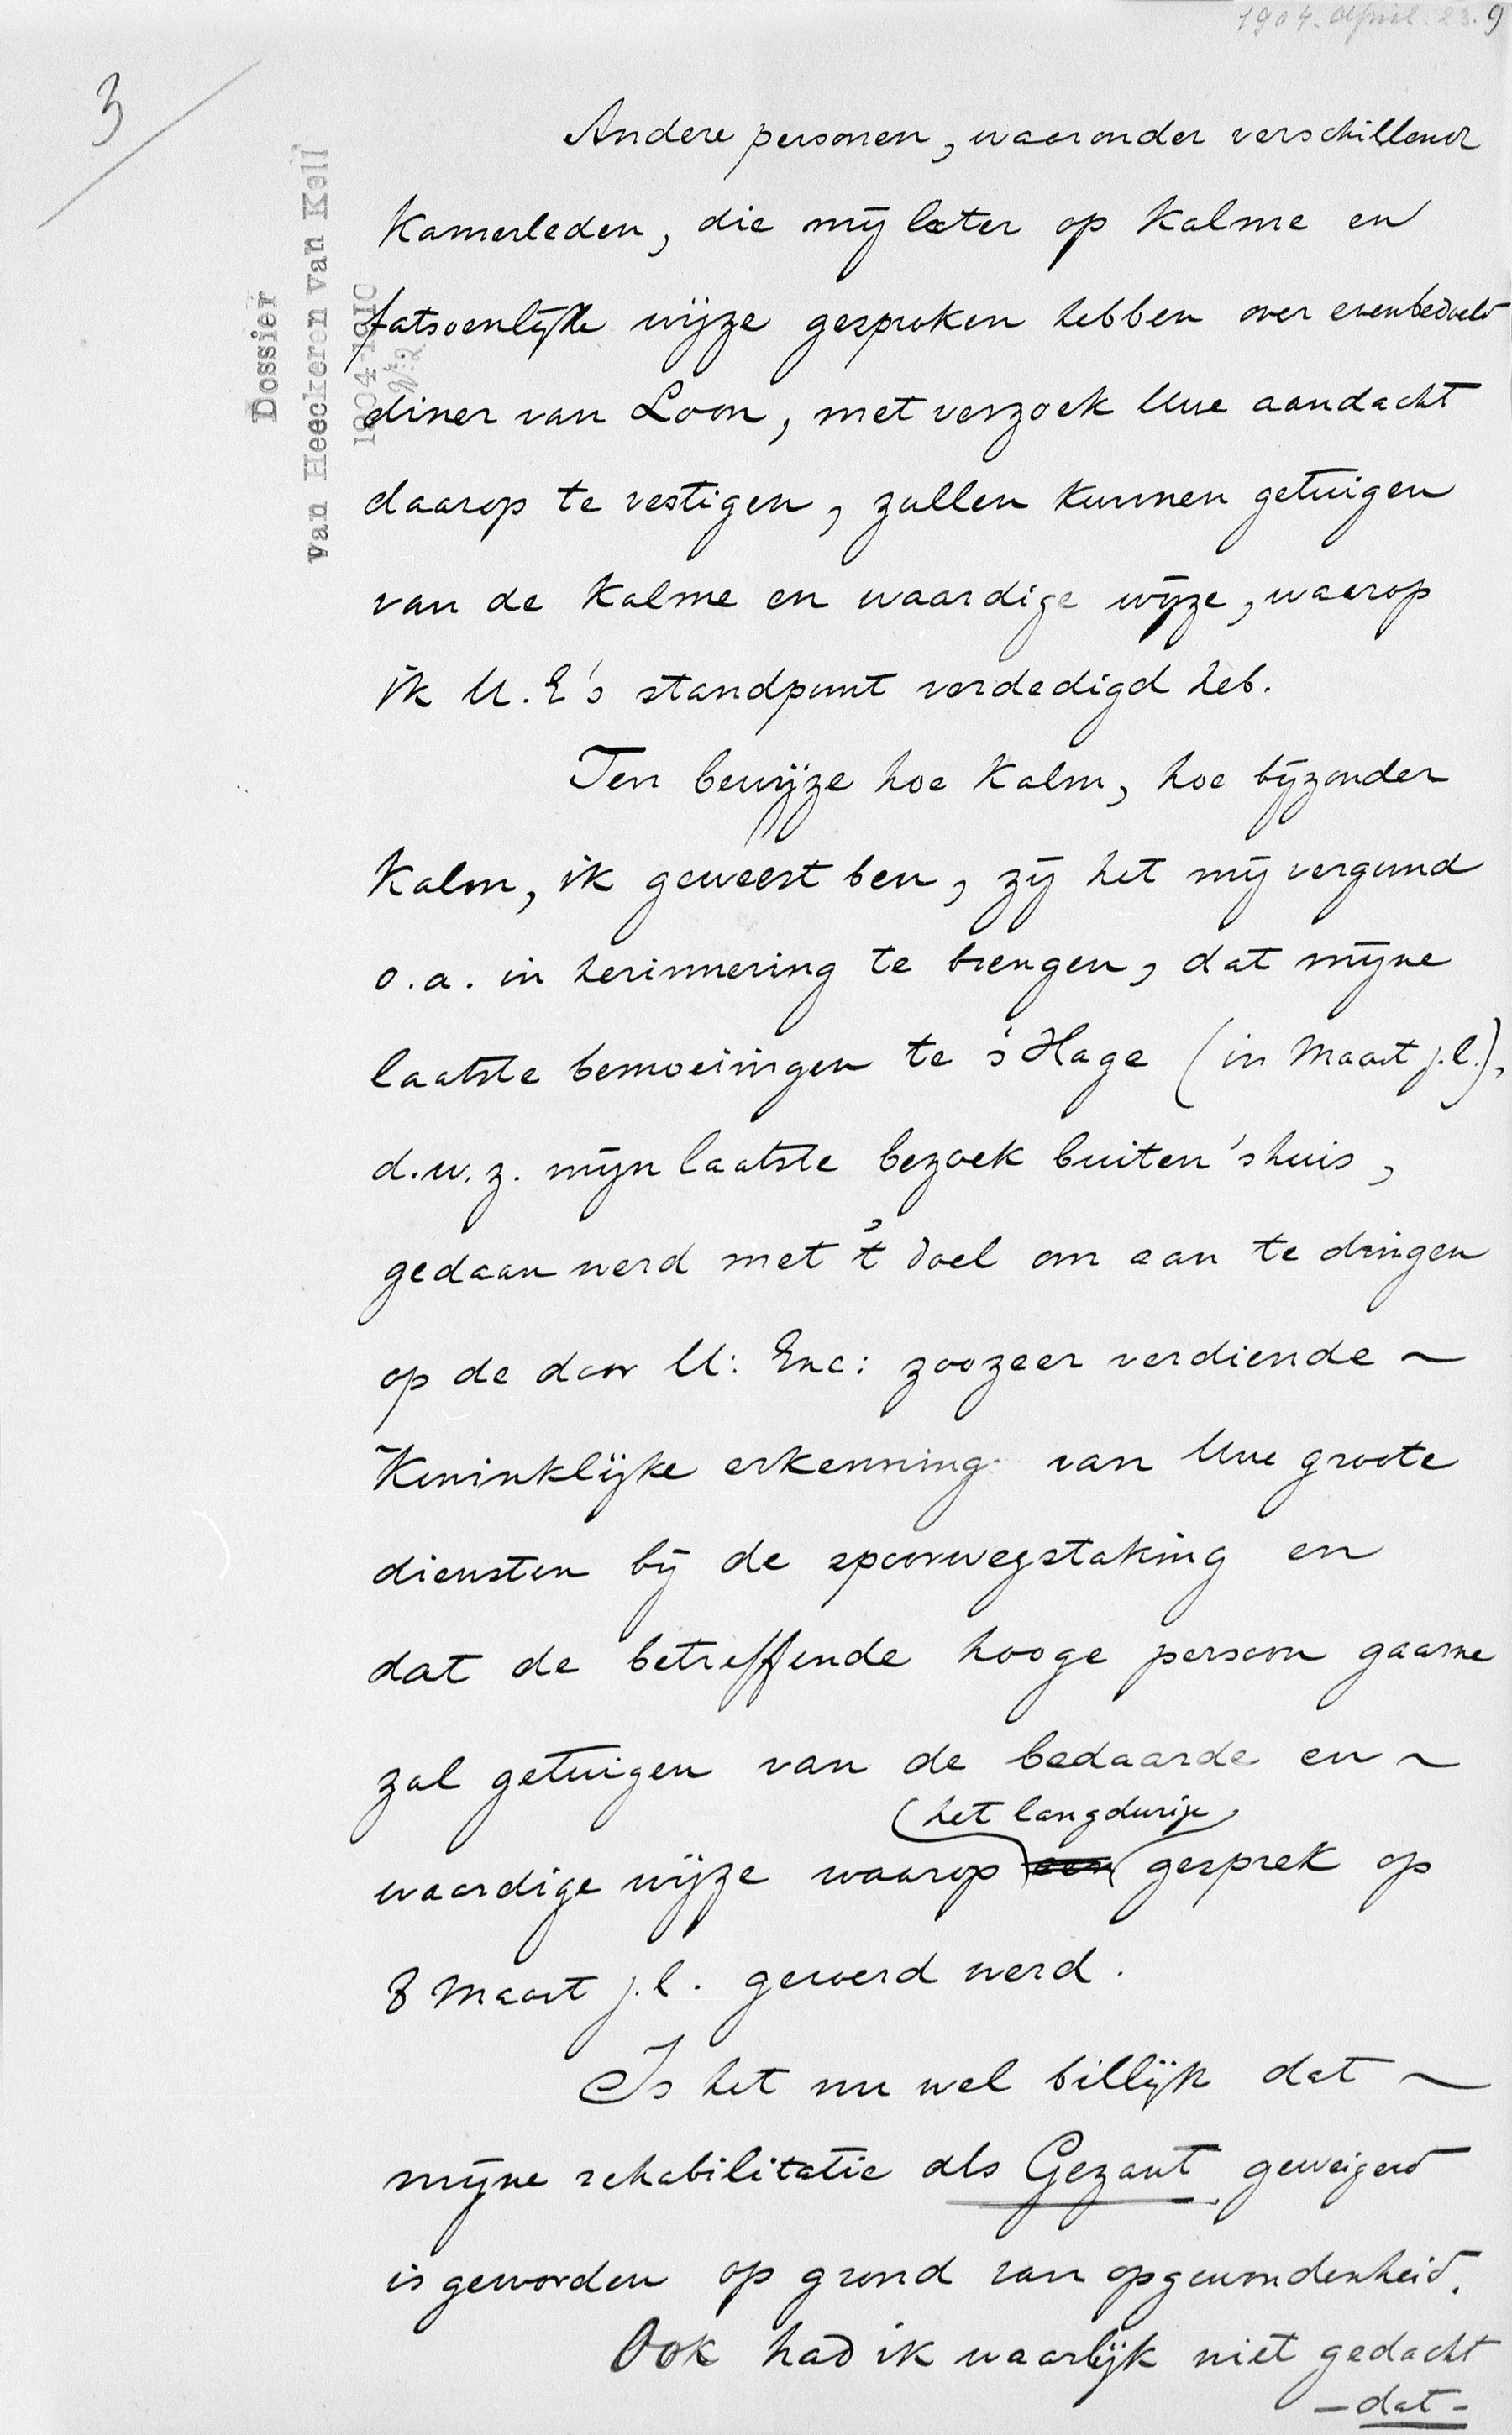 1904. April. 23. 9
3
Dossier
van Heeckeren van Kell
1904-1910
Andere personen, waaronder verschillende
Kamerleden, die mij later op Kalme en
fatsoenlijke wijze gesproken hebben over evenbedoeld
diner van Loon, met verzoek Uwe aandacht
daarop te vestigen, zullen kunnen getuigen
van de Kalme en waardige wijze, waarop
ik U. E's standpunt verdedigd heb.
Ten bewijze hoe Kalm, hoe bijzonder
Kalm, ik geweest ben, zij het mij vergund
o.a. in herinnering te brengen, dat mijne
laatste bemoeiingen te 's Hage (in Maart j.l.),
d.w.z. mijn laatste bezoek buiten 's huis,
gedaan werd met 't doel om aan te dringen
op de door U: Exc: zoozeer verdiende ~
Koninklijke erkenning van Uwe groote
diensten bij de spoorwegstaking en
dat de betreffende hooge persoon gaarne
zal getuigen van de bedaarde en ~
het langdurige
waardige wijze waarop een gesprek op
8 Maart j.l. gevoerd werd.
Is het nu wel billijk dat ~
mijne rehabilitatie als Gezant geweigerd
is geworden op grond van opgewondenheid.
Ook had ik waarlijk niet gedacht
- dat -